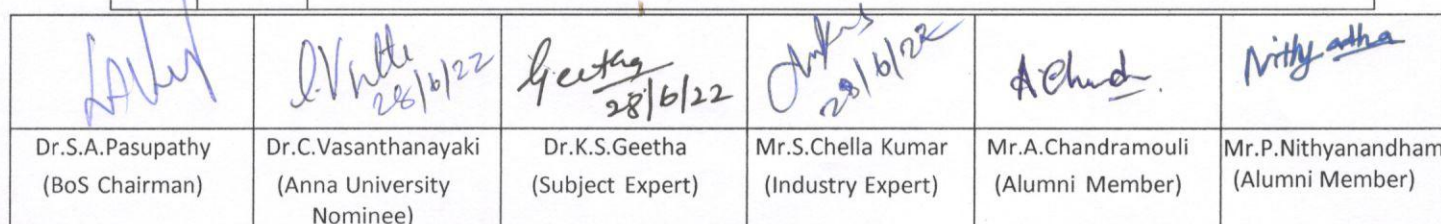 28/6/22
Geetha
28/6/22
28/6/22
A.Chand.
Dr.S.A.Pasupathy
(BoS Chairman)
Dr.C.Vasanthanayaki
(Anna University
Nominee)
Dr.K.S.Geetha
(Subject Expert)
Mr.S.Chella Kumar
(Industry Expert)
Mr.A.Chandramouli
(Alumni Member)
Mr.P.Nithyanandham
(Alumni Member)